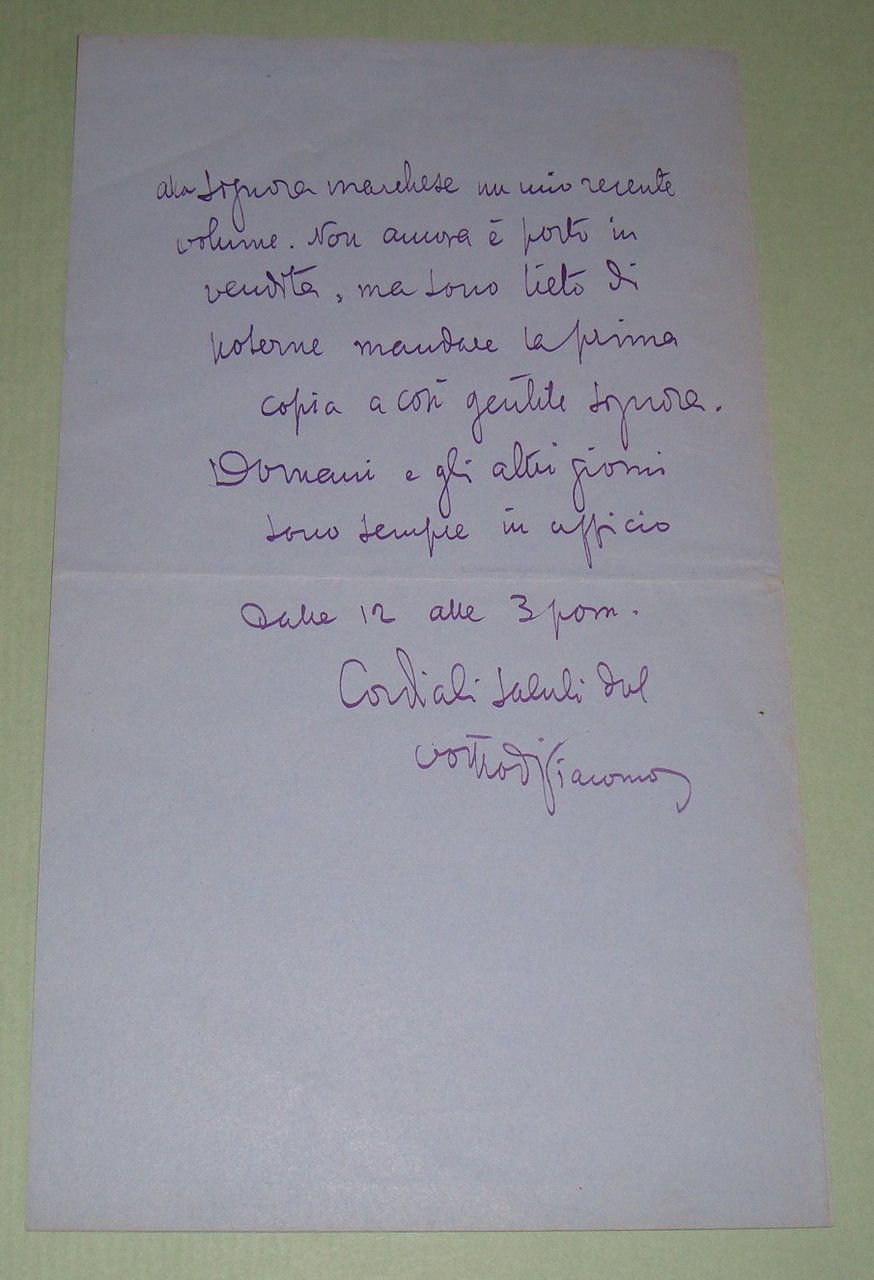 alla Signora marchese un mio recente
volume. Non ancora è posto in
vendita, ma sono lieto di
poterne mandare la prima
copia a così gentile signora.
Domani e gli altri giorni
sono sempre in ufficio
dalle 12 alle 3 pom.
Cordiali saluti dal
vostro di Giacomo